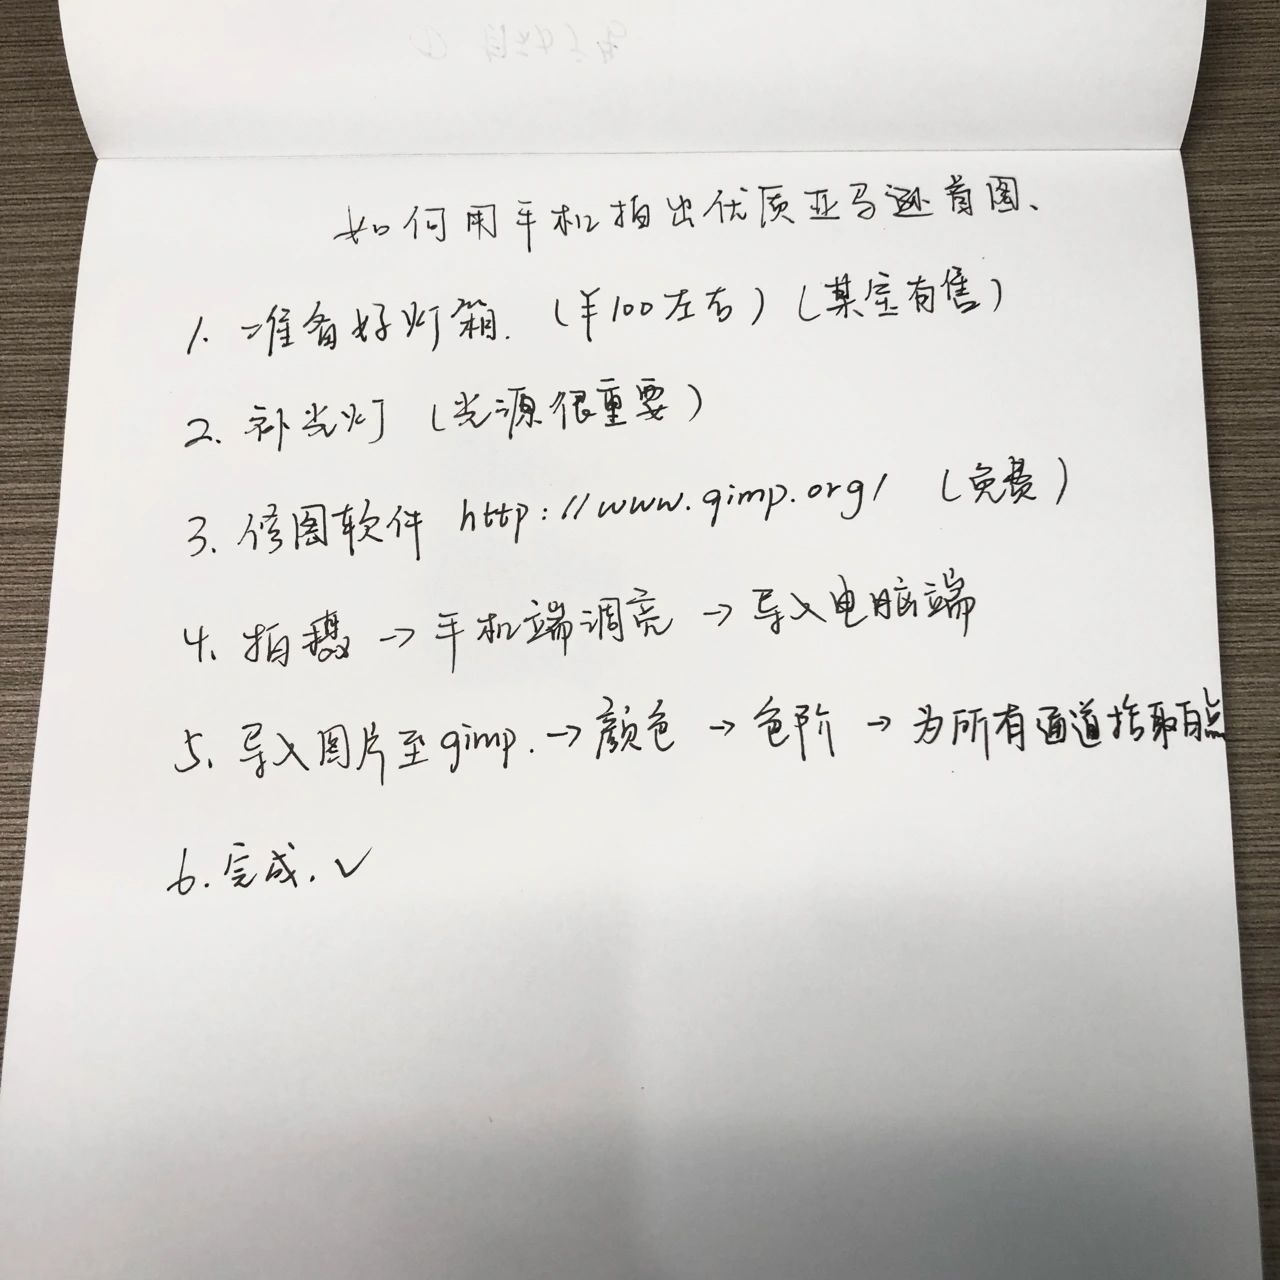 如何用手机拍出优质亚马逊首图、
1. 准备好灯箱. (¥100左右) (某宝有售)
2. 补光灯 (光源很重要)
3. 修图软件 http://www.gimp.org/ (免费)
4. 拍摄 → 手机端调亮 → 导入电脑端
5. 导入图片至gimp. → 颜色 → 色阶 → 为所有通道拾取白点
6. 完成. ✓